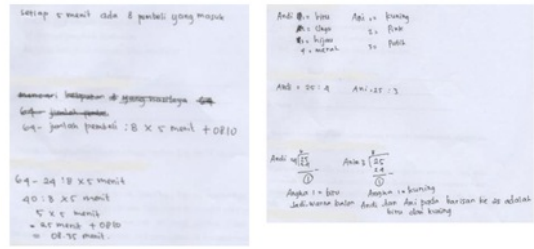 setiap 5 menit ada 8 pembeli yang masuk
64 - jumlah pembeli : 8 x 5 menit + 0810
64 - 24 : 8 x 5 menit
40 : 8 x 5 menit
5 x 5 menit
= 25 menit + 0810
= 08.35 menit.
Andi 1 = biru
2 = Ungu
3 = hijau
4 = merah
Ani 1 = kuning
2 = Pink
3 = Putih
Andi = 25 : 4
Ani = 25 : 3
Andi 4 25
24
1
Ani 3 25
8
24
1
Angka 1 = biru
Angka 1 = kuning
Jadi warna balon Andi dan Ani pada barisan ke 25 adalah
biru dan kuning